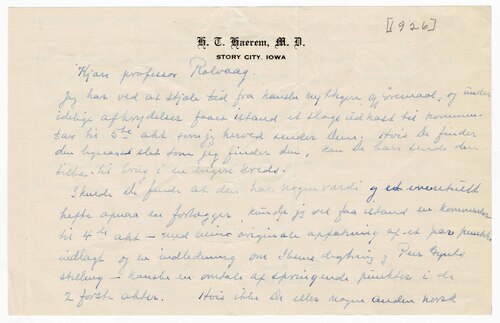 [1926]
H. T. Haerem, M. D.
STORY CITY, IOWA
Kjære professor Rolvaag.
Jeg har ved at stjæle tid fra kanske nyttigere gjøremaal, og under
idelige afbrydelser faaet istand et slags udkast til kommen-
tar til 5te akt som jeg herved sender Dem. Hvis De finder
den ligesaa slet som jeg finder den, kan De bare sende den
tilba. til brug i en engere kreds.
Skulde De finde at den har nogen værdi og eventuelt
hefte opnaa en forlægger, kunde jeg vel faa istand en kommentar
til 4de akt — med mine originale opfatning av et par punkter
indlagt og en indledning om Ibsens digtning og Peer Gynts
stilling — kanske en omtale av springende punkter i de
2 første akter. Hvis ikke De eller nogen anden norsk